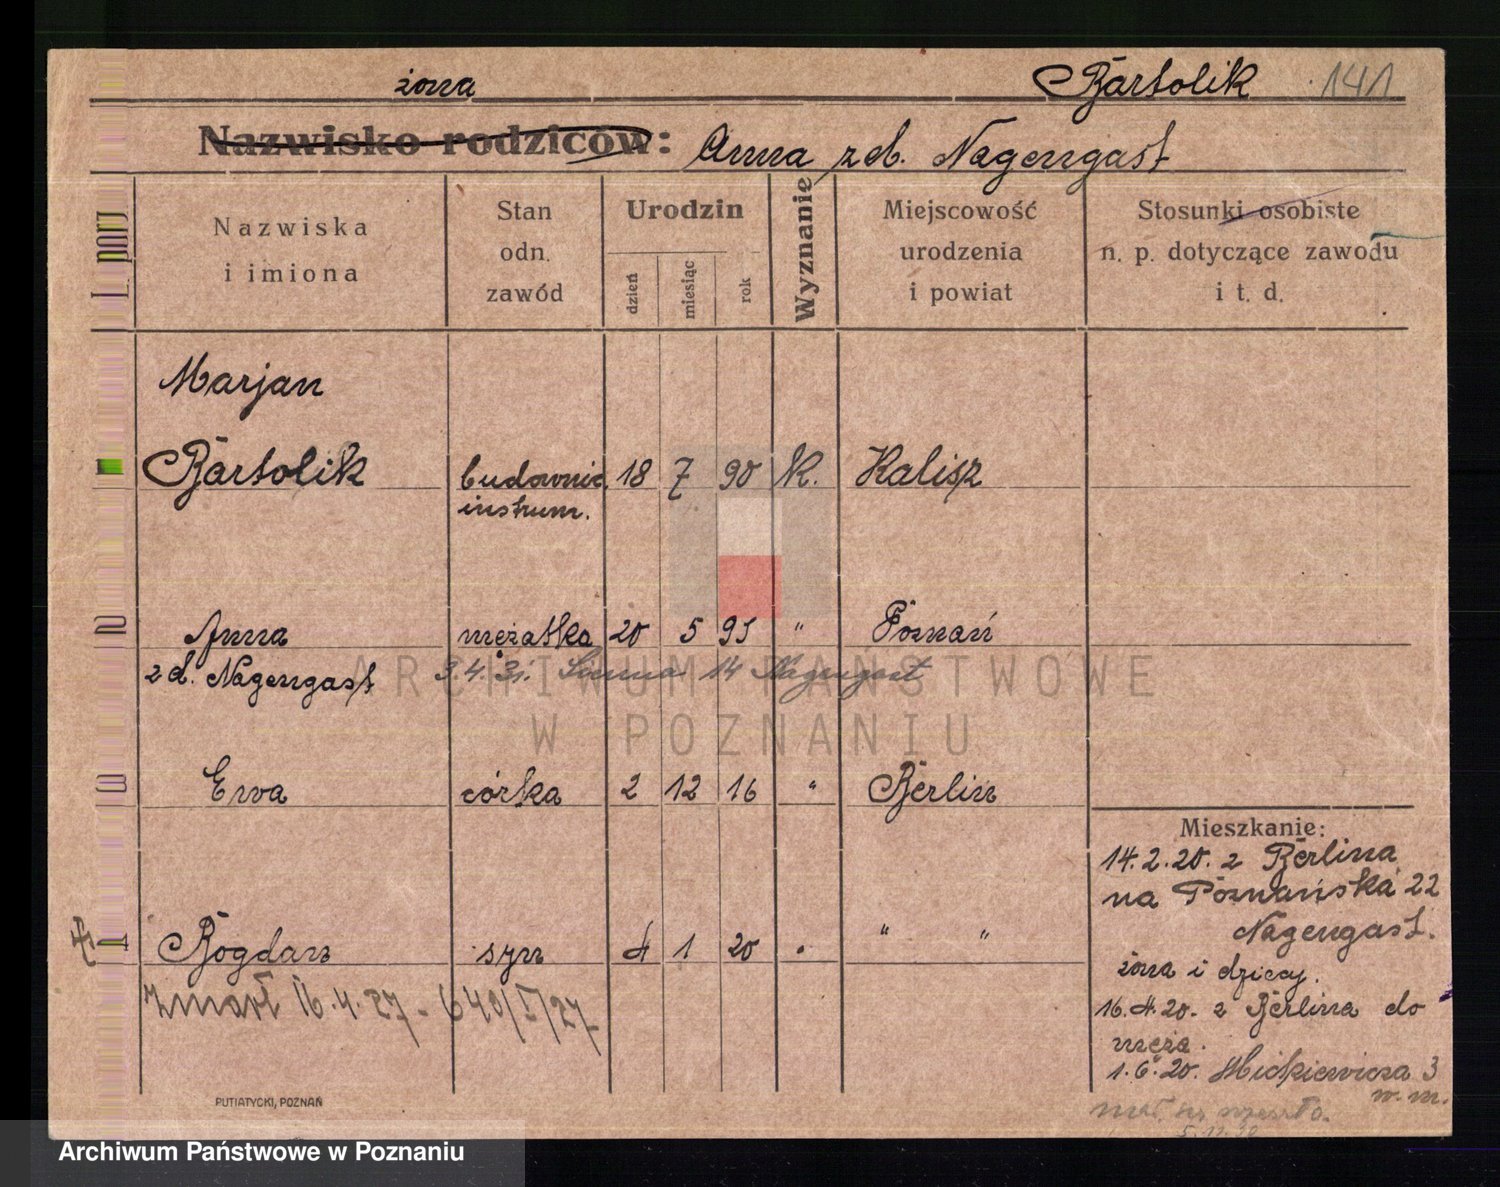 żona Bartolik 141
Nazwisko rodziców: Anna z d. Nagengast
L. porz
Nazwiska
i imiona
Stan
odn.
zawód
Urodzin
dzień
miesiąc
rok
Wyznanie
Miejscowość
urodzenia
i powiat
Stosunki osobiste
n. p. dotyczące zawodu
i t. d.
Marjan
Bartolik budownic. 18 7 90 K. Kalisz
instrum.
Anna mężatka 20 5 95 " Poznań
z d. Nagengast 3.4.31. 14 Nagengast
Ewa córka 2 12 16 " Berlin
Bogdan syn 4 1 20 " " "
zmarł 16.4.27 - 640/I/27
Mieszkanie:
14.2.20. z Berlina
na Poznańska 22
Nagengast.
żona i dzieci.
16.4.20. z Berlina do
męża.
1.6.20. Mickiewicza 3
w. m.
PUTIATYCKI, POZNAŃ
ARCHIWUM PAŃSTWOWE
W POZNANIU
Archiwum Państwowe w Poznaniu